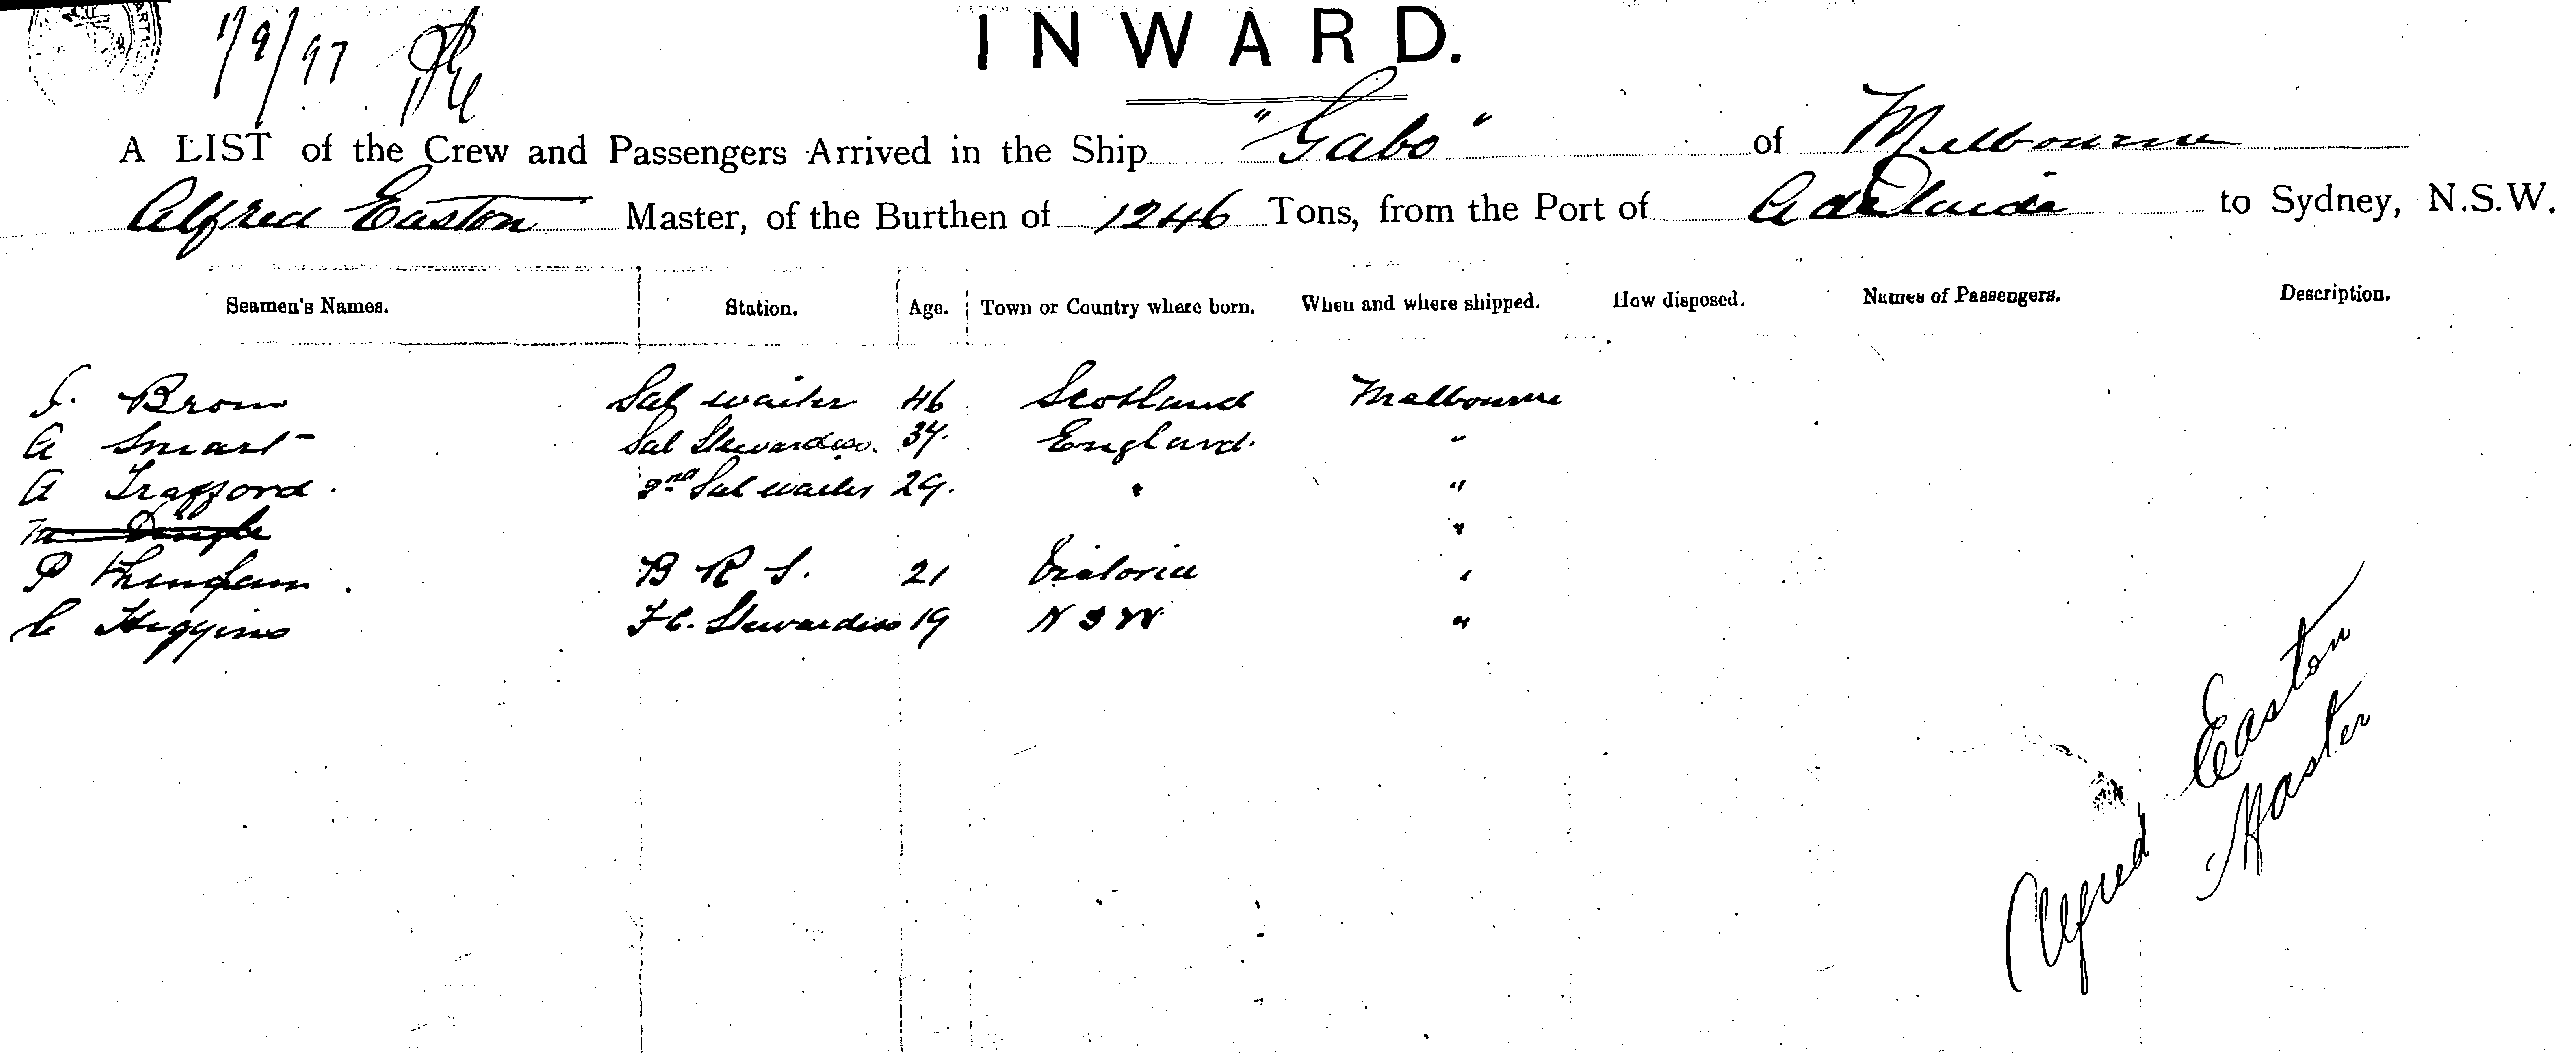 1/9/97
INWARD.
A LIST of the Crew and Passengers Arrived in the Ship "Gabo" of Melbourne
Alfred Easton Master, of the Burthen of 1246 Tons, from the Port of Adelaide to Sydney, N.S.W.
Seamen's Names. Station. Age. Town or Country where born. When and where shipped. How disposed. Names of Passengers. Description.
J. Brown Sal waiter 46 Scotland Melbourne
A Smart Sal Stewardess. 37. England. "
A Trafford. 2nd Sal waiter 29. " "
M Dingle "
P B R S. 21 Victoria "
C Higgins F.C. Stewardess 19 N S W "
Alfred Easton
Master